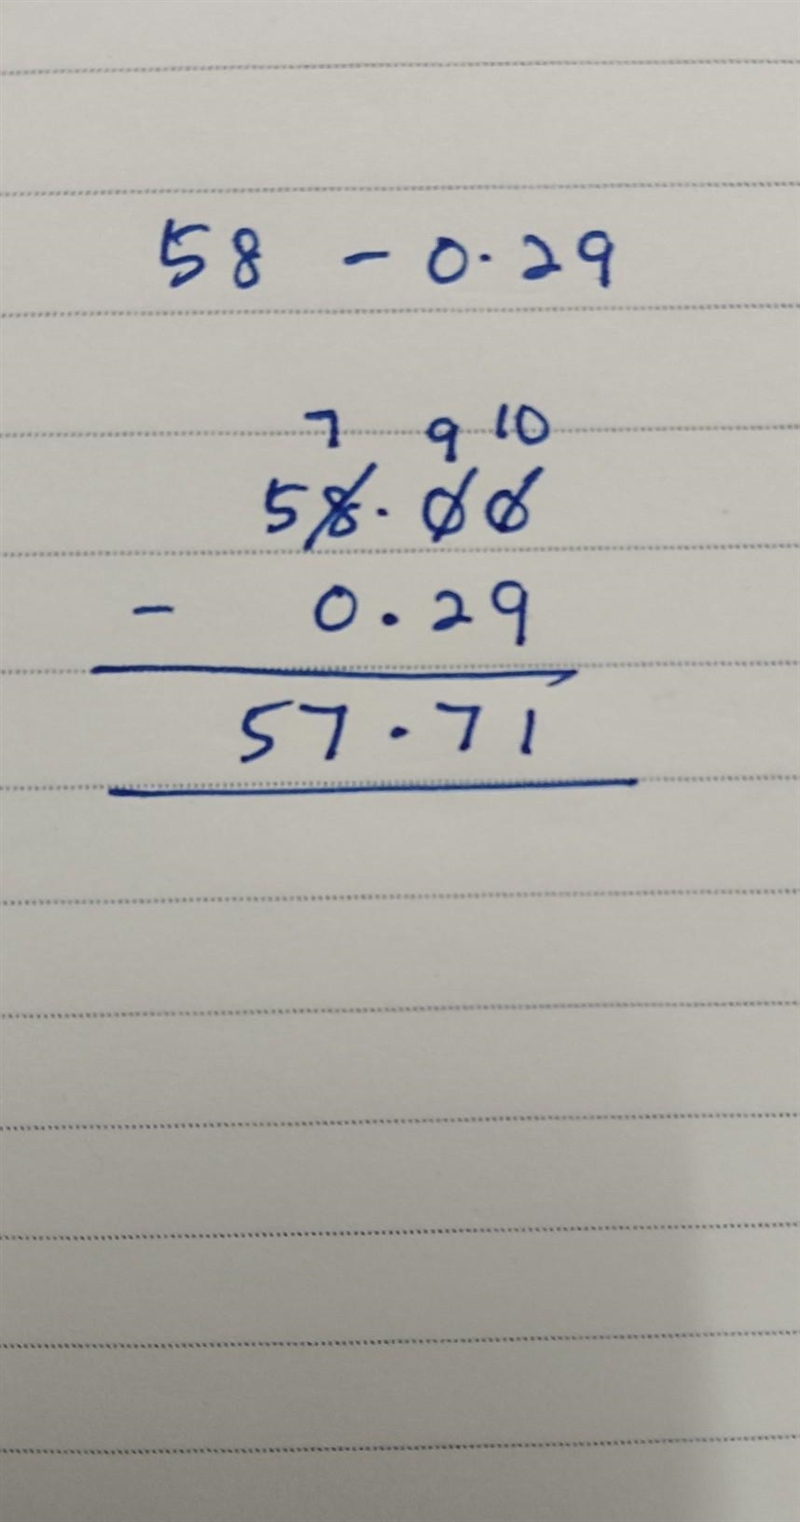 58 - 0.29
7 9 10
58.00
- 0.29
57.71